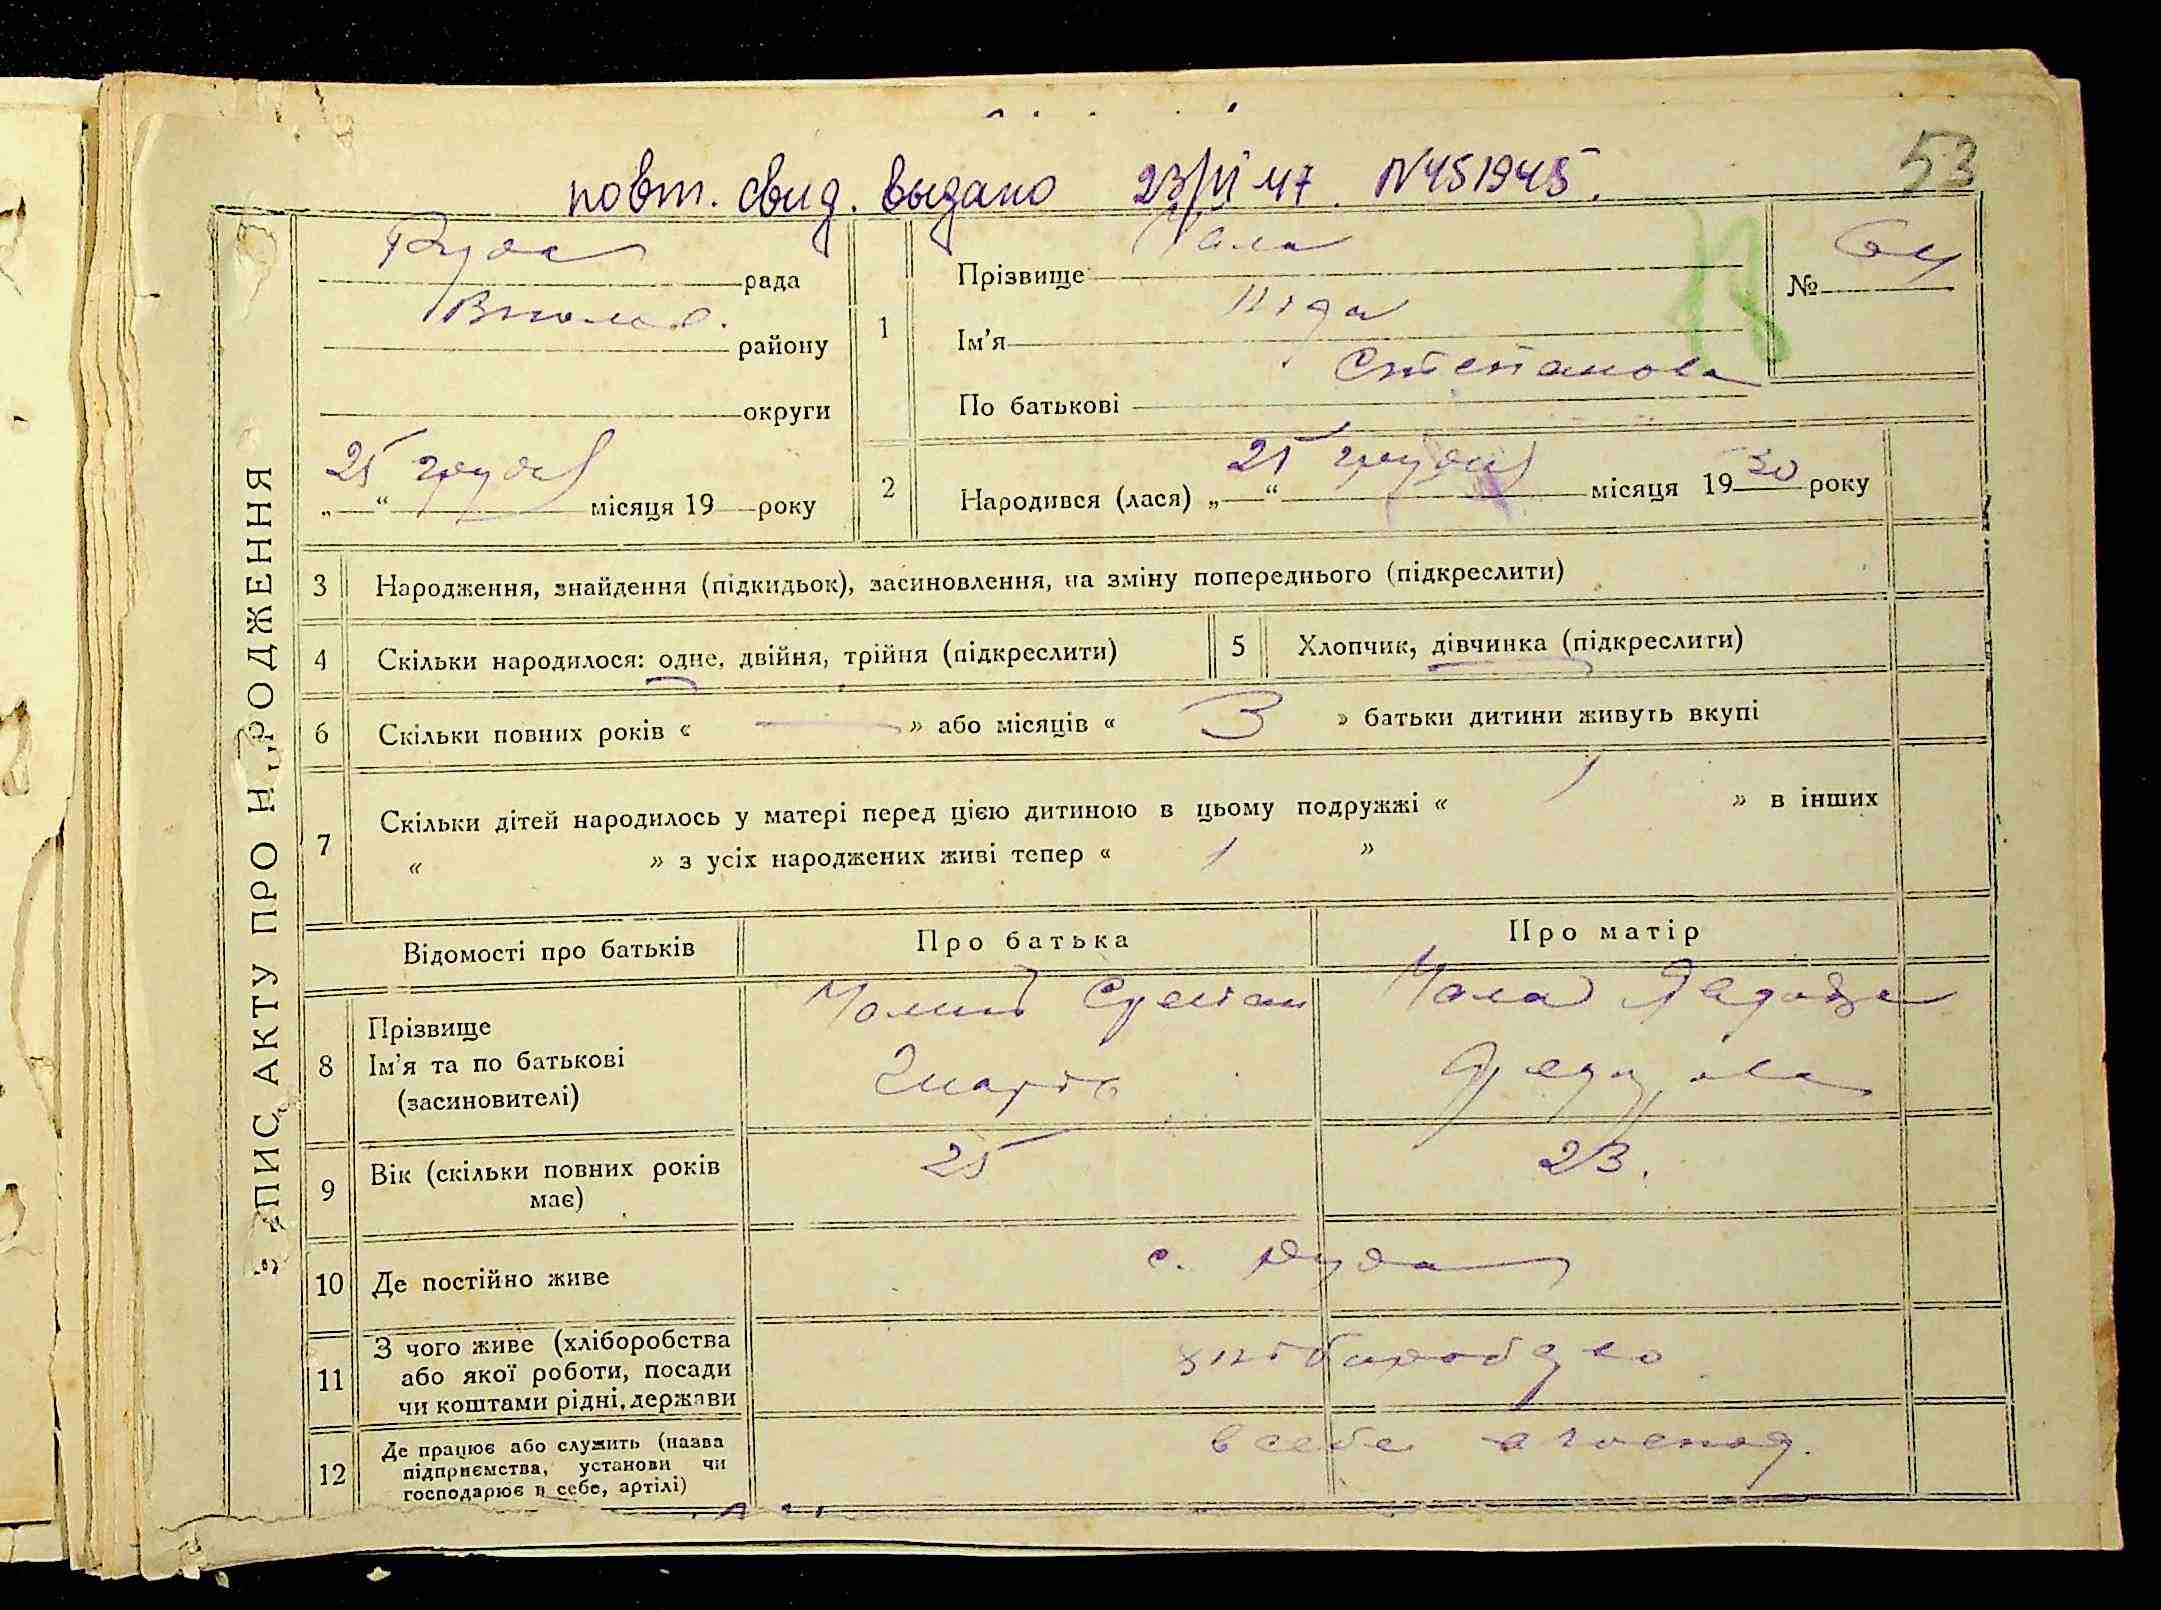 53
повт. свид. выдано 23/VI 47. N451945.
ЗАПИС АКТУ ПРО НАРОДЖЕННЯ
Руда рада
району
округи
25 грудня
„ “ місяця 19 року
1
Прізвище
Ім’я Ніда
По батькові Степанова
№ 64
18
2
Народився (лася) „25“ грудня місяця 1930 року
3 Народження, знайдення (підкидьок), засиновлення, на зміну попереднього (підкреслити)
4 Скільки народилося: одне, двійня, трійня (підкреслити) 5 Хлопчик, дівчинка (підкреслити)
6 Скільки повних років « — » або місяців « 3 » батьки дитини живуть вкупі
7 Скільки дітей народилось у матері перед цією дитиною в цьому подружжі « 1 » в інших
« » з усіх народжених живі тепер « 1 »
Відомості про батьків Про батька Про матір
8 Прізвище
Ім’я та по батькові
(засиновителі)
9 Вік (скільки повних років має) 25 23.
10 Де постійно живе с. Руда
11 З чого живе (хліборобства
або якої роботи, посади
чи коштами рідні, держави
12 Де працює або служить (назва
підприємства, установи чи
господарює в себе, артілі) в себе в господ.